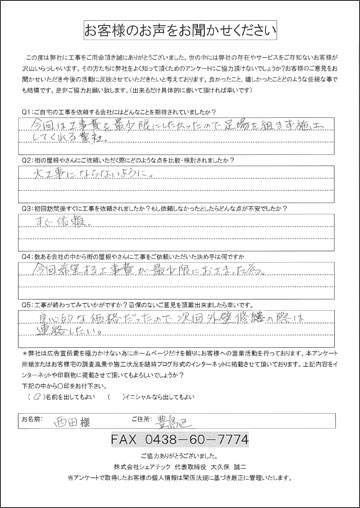 お客様のお声をお聞かせください
この度は弊社に工事をご用命頂き誠にありがとうございました。世の中には弊社の存在やサービスをご存知ないお客様が
沢山いらっしゃいます。その方たちに弊社をよく知って頂くためのアンケートにご協力頂けないでしょうか?お客様のご意見をお
聞かせいただき今後の活動に反映させていただきたいと考えております。良かったこと、嬉しかったことどのような些細な事で
も結構です。是非ご協力お願い致します。(出来るだけ具体的に書いて頂ければ幸いです)
Q1:ご自宅の工事を依頼する会社にはどんなことを期待されていましたか?
今回は工事費を最少限にしたかったので足場を組まず施工
してくれる業社。
Q2:街の屋根やさんにご依頼いただく際にどのような点を比較・検討されましたか?
大工事にならないように。
Q3:初回訪問後すぐに工事を依頼されましたか?もし依頼しなかったとしたらどんな点が不安でしたか?
すぐ依頼。
Q4:数ある会社の中から街の屋根やさんに工事をご依頼いただいた決め手は何ですか
今回希望する工事費が最少限におさまった為。
Q5:工事が終わってみていかがですか?忌憚のないご意見を頂戴出来ましたら幸いです。
良心的な価格だったので次回外壁修繕の際は
連絡したい。
*弊社は広告宣伝費を極力かけない為にホームページだけを頼りにお客様への営業活動を行っております。本アンケート
用紙またはお客様宅の調査風景や施工状況を随時ブログ形式のインターネットに掲載させて頂いております。上記内容をイ
ンターネットや印刷物に掲載させて頂いてもよろしいでしょうか?
下記の中から〇印をお付下さい。
(〇)名前を出してもよい ( )イニシャルなら出してもよい
お名前: 西田 様 ご住所:
FAX 0438-60-7774
ご協力ありがとうございました。
株式会社シェアテック 代表取締役 大久保 誠二
当アンケートで取得したお客様の個人情報は関係法規に基づき厳正に管理いたします。